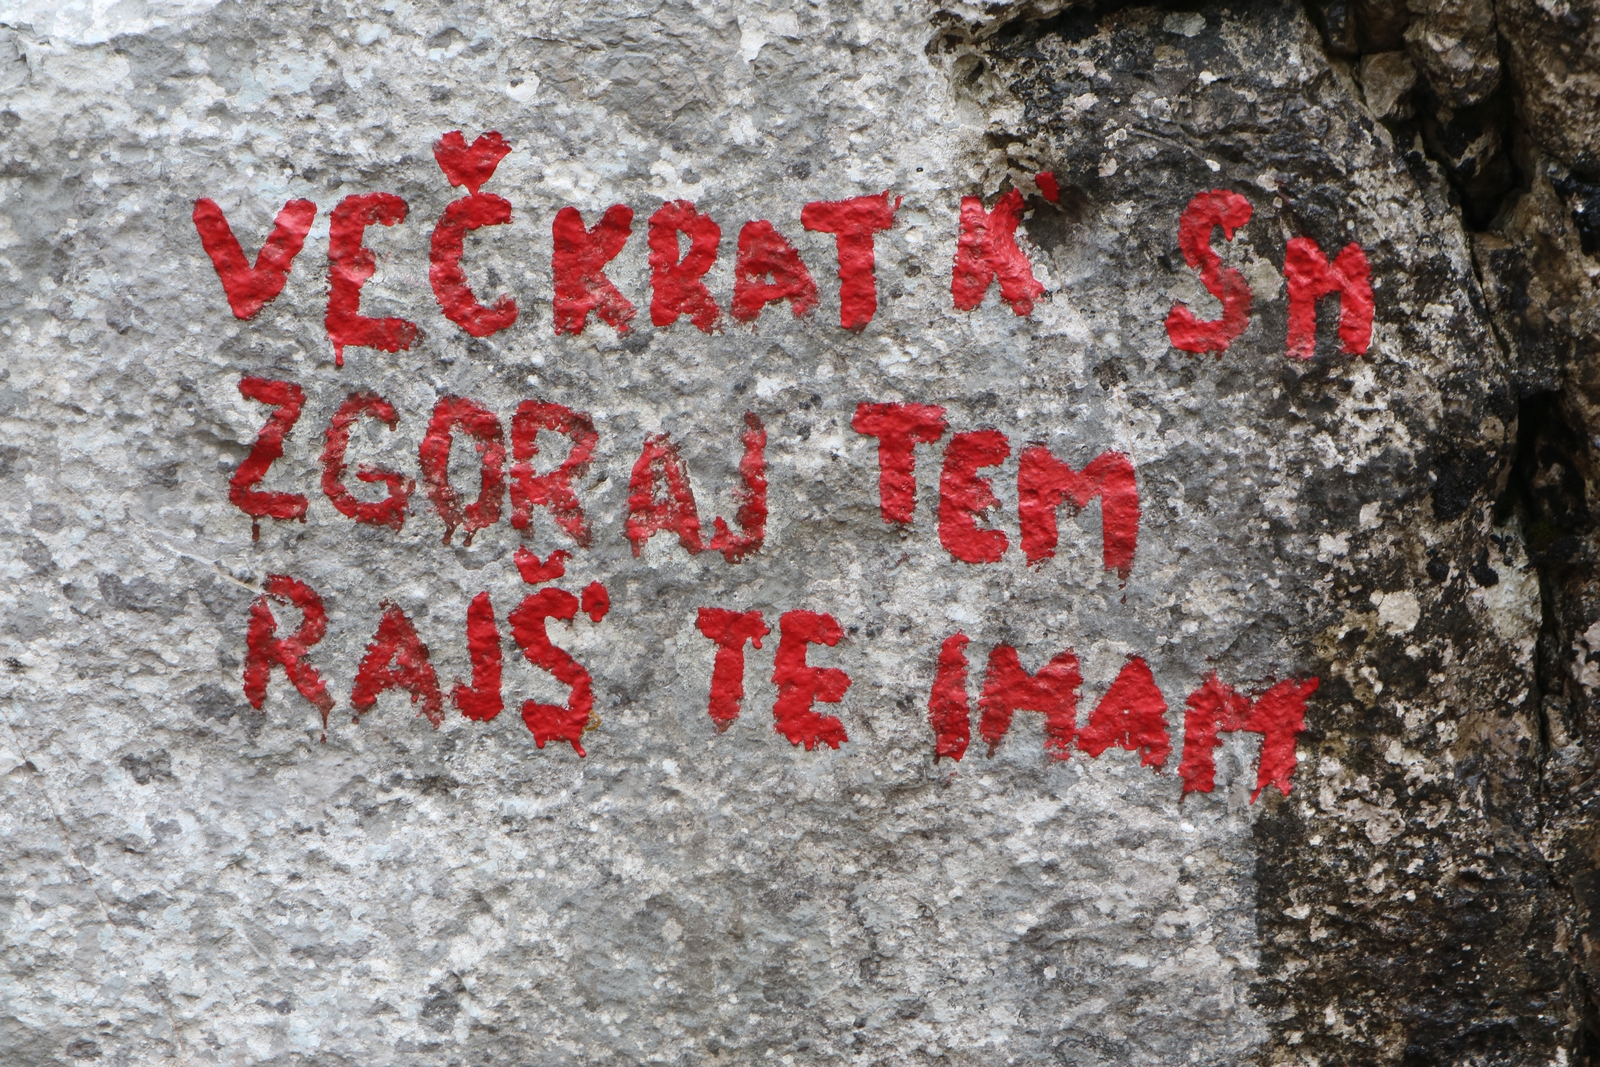 VEČKRAT K' SM
ZGORAJ TEM
RAJŠ' TE IMAM